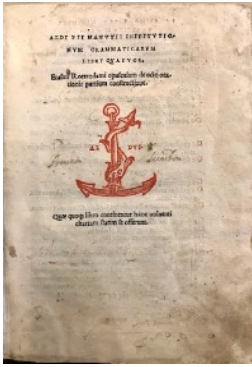 ALDI PII MANVTII INSTITVTIO-
NVM GRAMMATICARVM
LIBRI QVATVOR.
Erasmi Roterodami opusculum de octo ora-
tionis partium constructione.
AL DVS
Quae quoq; libro continentur hunc uoluenti
chartam statim se offerunt.